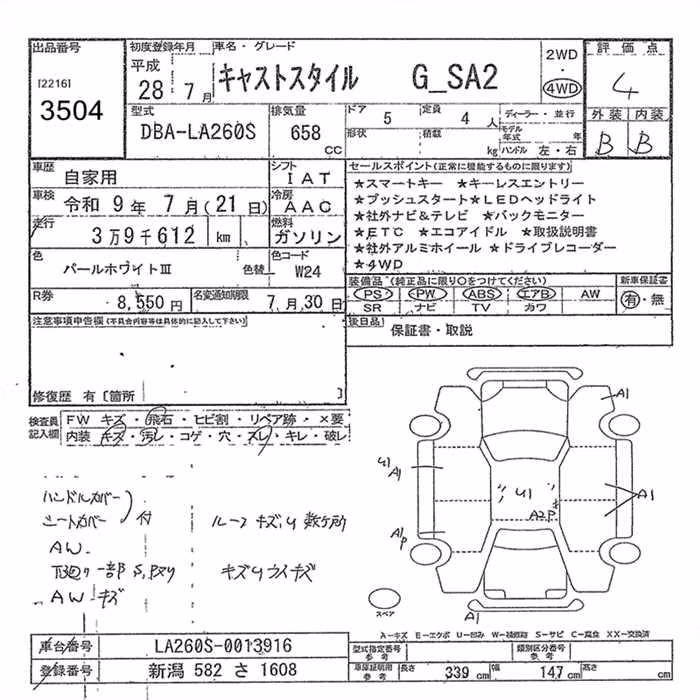 出品番号
[2216]
3504
初度登録年月
平成
28年 7月
車名・グレード
キャストスタイル G_SA2
2WD
・
4WD
評価点
4
外装 内装
B B
型式
DBA-LA260S
排気量
658
CC
ドア
5
定員
4 人
形状
積載
kg
ディーラー・並行
モデル
年式 年
ハンドル 左・右
車歴
自家用
シフト
IAT
車検
令和 9年 7月(21日)
冷房
AAC
走行
3万9千612 km
燃料
ガソリン
色
パールホワイトⅢ
色替
色コード
W24
R券
8,550円
名変通知期限
7月30日
セールスポイント(正常に機能するものに限ります)
★スマートキー ★キーレスエントリー
★プッシュスタート★LEDヘッドライト
★社外ナビ&テレビ ★バックモニター
★ETC ★エコアイドル ★取扱説明書
★社外アルミホイール ★ドライブレコーダー
★4WD
装備品(純正品に限り○をつけてください)
PS PW ABS エアB AW
SR ナビ TV カワ
新車保証書
有・無
後日品
保証書・取説
注意事項申告欄(不具合内容等は具体的に記入して下さい)
修復歴 有〔箇所 〕
検査員
記入欄
FW キズ・飛石・ヒビ割・リペア跡・×要
内装 キズ・汚レ・コゲ・穴・スレ・キレ・破レ
ハンドルカバー
シートカバー
付
AW.
下廻り一部S,Pスリ
AWキズ
ルーフキズU数ヶ所
キズUウスキズ
A1
U1
A1
U1
A2P
A1
A1P
A1
スペア
A-キズ E-エクボ U-凹み W-補修跡 S-サビ C-腐食 XX-交換済
車台番号
LA260S-0013916
登録番号
新潟 582 さ 1608
型式指定番号
参考
類別区分番号
参考
車庫証明用
参考
長さ 339 cm 幅 147 cm 高さ cm